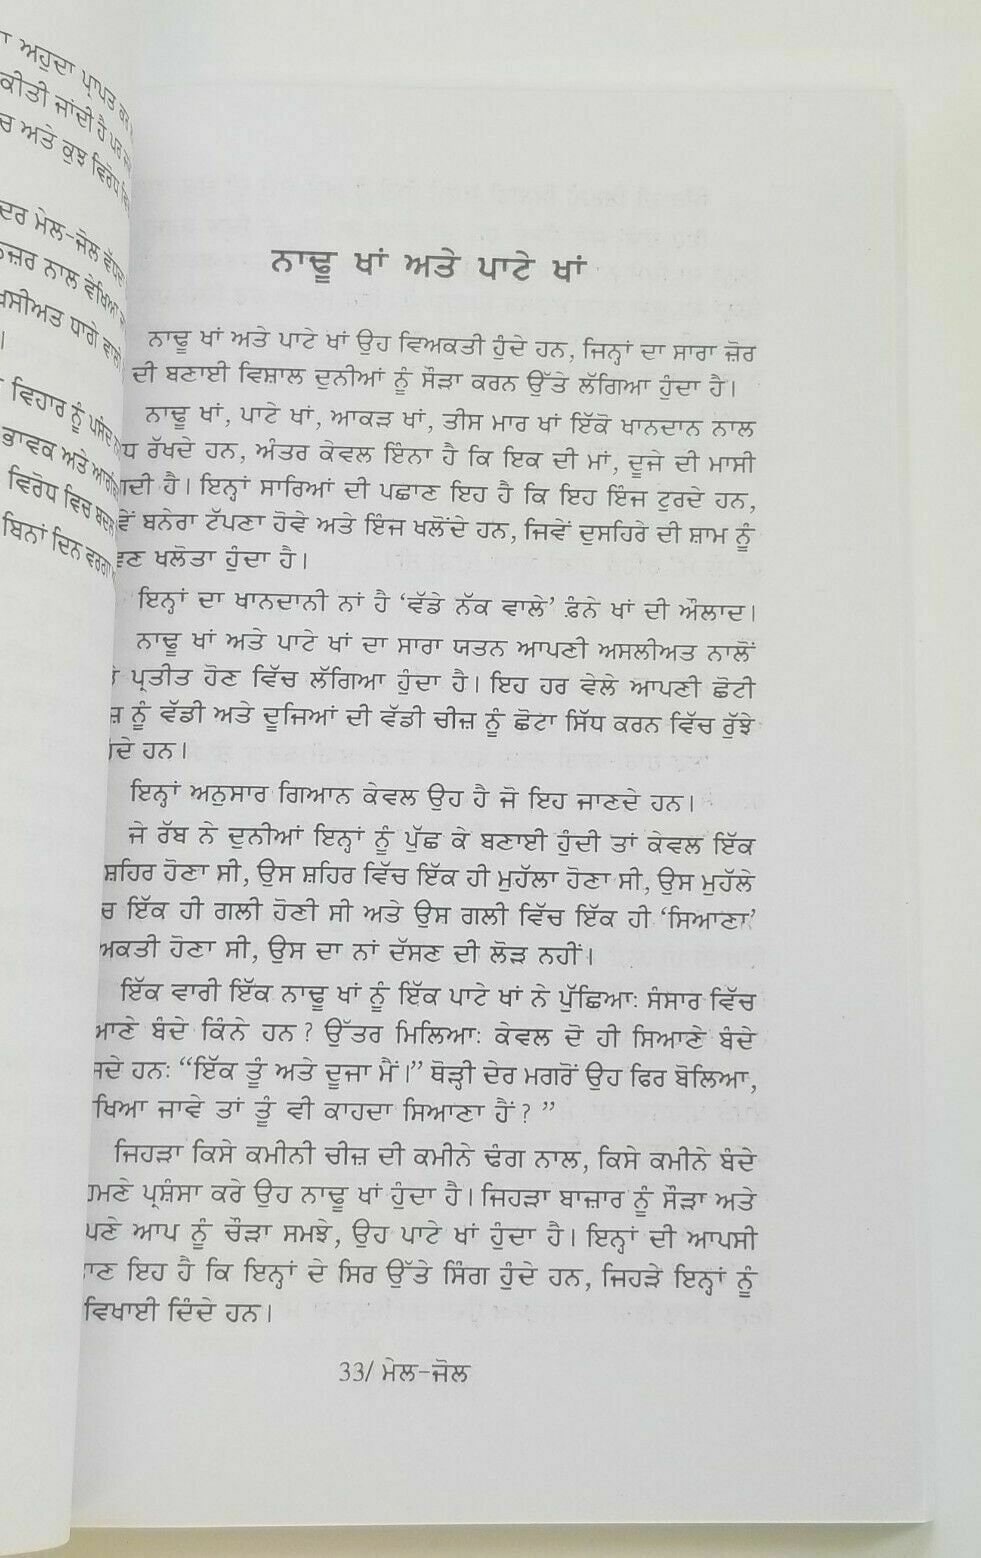 ਅਹੁਦਾ ਪ੍ਰਾਪਤ
ਕੀਤੀ ਜਾਂਦੀ ਹੈ ਪਰ
ਅਤੇ ਕੁਝ ਵਿਰੋਧ
ਮੇਲ-ਜੋਲ
ਨਾਲ ਵੇਖਿਆ
ਧਾਗੇ ਵਾਲੀ
।
ਵਿਹਾਰ ਨੂੰ ਪਸੰਦ
ਭਾਵਕ ਅਤੇ
ਵਿਰੋਧ ਵਿਚ
ਬਿਨਾਂ ਦਿਨ ਵਰਗਾ
ਨਾਢੂ ਖਾਂ ਅਤੇ ਪਾਟੇ ਖਾਂ
ਨਾਢੂ ਖਾਂ ਅਤੇ ਪਾਟੇ ਖਾਂ ਉਹ ਵਿਅਕਤੀ ਹੁੰਦੇ ਹਨ, ਜਿਨ੍ਹਾਂ ਦਾ ਸਾਰਾ ਜ਼ੋਰ
ਦੀ ਬਣਾਈ ਵਿਸ਼ਾਲ ਦੁਨੀਆਂ ਨੂੰ ਸੌੜਾ ਕਰਨ ਉੱਤੇ ਲੱਗਿਆ ਹੁੰਦਾ ਹੈ।
ਨਾਢੂ ਖਾਂ, ਪਾਟੇ ਖਾਂ, ਆਕੜ ਖਾਂ, ਤੀਸ ਮਾਰ ਖਾਂ ਇੱਕੋ ਖਾਨਦਾਨ ਨਾਲ
ਰੱਖਦੇ ਹਨ, ਅੰਤਰ ਕੇਵਲ ਇੰਨਾ ਹੈ ਕਿ ਇਕ ਦੀ ਮਾਂ, ਦੂਜੇ ਦੀ ਮਾਸੀ
ਹੈ। ਇਨ੍ਹਾਂ ਸਾਰਿਆਂ ਦੀ ਪਛਾਣ ਇਹ ਹੈ ਕਿ ਇਹ ਇੰਜ ਟੁਰਦੇ ਹਨ,
ਬਨੇਰਾ ਟੱਪਣਾ ਹੋਵੇ ਅਤੇ ਇੰਜ ਖਲੋਂਦੇ ਹਨ, ਜਿਵੇਂ ਦੁਸਹਿਰੇ ਦੀ ਸ਼ਾਮ ਨੂੰ
ਖਲੋਤਾ ਹੁੰਦਾ ਹੈ।
ਇਨ੍ਹਾਂ ਦਾ ਖਾਨਦਾਨੀ ਨਾਂ ਹੈ ‘ਵੱਡੇ ਨੱਕ ਵਾਲੇ’ ਫ਼ੰਨੇ ਖਾਂ ਦੀ ਔਲਾਦ।
ਨਾਢੂ ਖਾਂ ਅਤੇ ਪਾਟੇ ਖਾਂ ਦਾ ਸਾਰਾ ਯਤਨ ਆਪਣੀ ਅਸਲੀਅਤ ਨਾਲੋਂ
ਪ੍ਰਤੀਤ ਹੋਣ ਵਿੱਚ ਲੱਗਿਆ ਹੁੰਦਾ ਹੈ। ਇਹ ਹਰ ਵੇਲੇ ਆਪਣੀ ਛੋਟੀ
ਨੂੰ ਵੱਡੀ ਅਤੇ ਦੂਜਿਆਂ ਦੀ ਵੱਡੀ ਚੀਜ਼ ਨੂੰ ਛੋਟਾ ਸਿੱਧ ਕਰਨ ਵਿੱਚ ਰੁੱਝੇ
ਹਨ।
ਇਨ੍ਹਾਂ ਅਨੁਸਾਰ ਗਿਆਨ ਕੇਵਲ ਉਹ ਹੈ ਜੋ ਇਹ ਜਾਣਦੇ ਹਨ।
ਜੇ ਰੱਬ ਨੇ ਦੁਨੀਆਂ ਇਨ੍ਹਾਂ ਨੂੰ ਪੁੱਛ ਕੇ ਬਣਾਈ ਹੁੰਦੀ ਤਾਂ ਕੇਵਲ ਇੱਕ
ਸ਼ਹਿਰ ਹੋਣਾ ਸੀ, ਉਸ ਸ਼ਹਿਰ ਵਿੱਚ ਇੱਕ ਹੀ ਮੁਹੱਲਾ ਹੋਣਾ ਸੀ, ਉਸ ਮੁਹੱਲੇ
ਇੱਕ ਹੀ ਗਲੀ ਹੋਣੀ ਸੀ ਅਤੇ ਉਸ ਗਲੀ ਵਿੱਚ ਇੱਕ ਹੀ ‘ਸਿਆਣਾ’
ਹੋਣਾ ਸੀ, ਉਸ ਦਾ ਨਾਂ ਦੱਸਣ ਦੀ ਲੋੜ ਨਹੀਂ।
ਇੱਕ ਵਾਰੀ ਇੱਕ ਨਾਢੂ ਖਾਂ ਨੂੰ ਇੱਕ ਪਾਟੇ ਖਾਂ ਨੇ ਪੁੱਛਿਆ: ਸੰਸਾਰ ਵਿੱਚ
ਬੰਦੇ ਕਿੰਨੇ ਹਨ? ਉੱਤਰ ਮਿਲਿਆ: ਕੇਵਲ ਦੋ ਹੀ ਸਿਆਣੇ ਬੰਦੇ
ਹਨ: “ਇੱਕ ਤੂੰ ਅਤੇ ਦੂਜਾ ਮੈਂ।” ਥੋੜ੍ਹੀ ਦੇਰ ਮਗਰੋਂ ਉਹ ਫਿਰ ਬੋਲਿਆ,
ਜਾਵੇ ਤਾਂ ਤੂੰ ਵੀ ਕਾਹਦਾ ਸਿਆਣਾ ਹੈਂ?”
ਜਿਹੜਾ ਕਿਸੇ ਕਮੀਨੀ ਚੀਜ਼ ਦੀ ਕਮੀਨੇ ਢੰਗ ਨਾਲ, ਕਿਸੇ ਕਮੀਨੇ ਬੰਦੇ
ਪ੍ਰਸ਼ੰਸਾ ਕਰੇ ਉਹ ਨਾਢੂ ਖਾਂ ਹੁੰਦਾ ਹੈ। ਜਿਹੜਾ ਬਾਜ਼ਾਰ ਨੂੰ ਸੌੜਾ ਅਤੇ
ਆਪ ਨੂੰ ਚੌੜਾ ਸਮਝੇ, ਉਹ ਪਾਟੇ ਖਾਂ ਹੁੰਦਾ ਹੈ। ਇਨ੍ਹਾਂ ਦੀ ਆਪਸੀ
ਇਹ ਹੈ ਕਿ ਇਨ੍ਹਾਂ ਦੇ ਸਿਰ ਉੱਤੇ ਸਿੰਗ ਹੁੰਦੇ ਹਨ, ਜਿਹੜੇ ਇਨ੍ਹਾਂ ਨੂੰ
ਵਿਖਾਈ ਦਿੰਦੇ ਹਨ।
33/ ਮੇਲ-ਜੋਲ